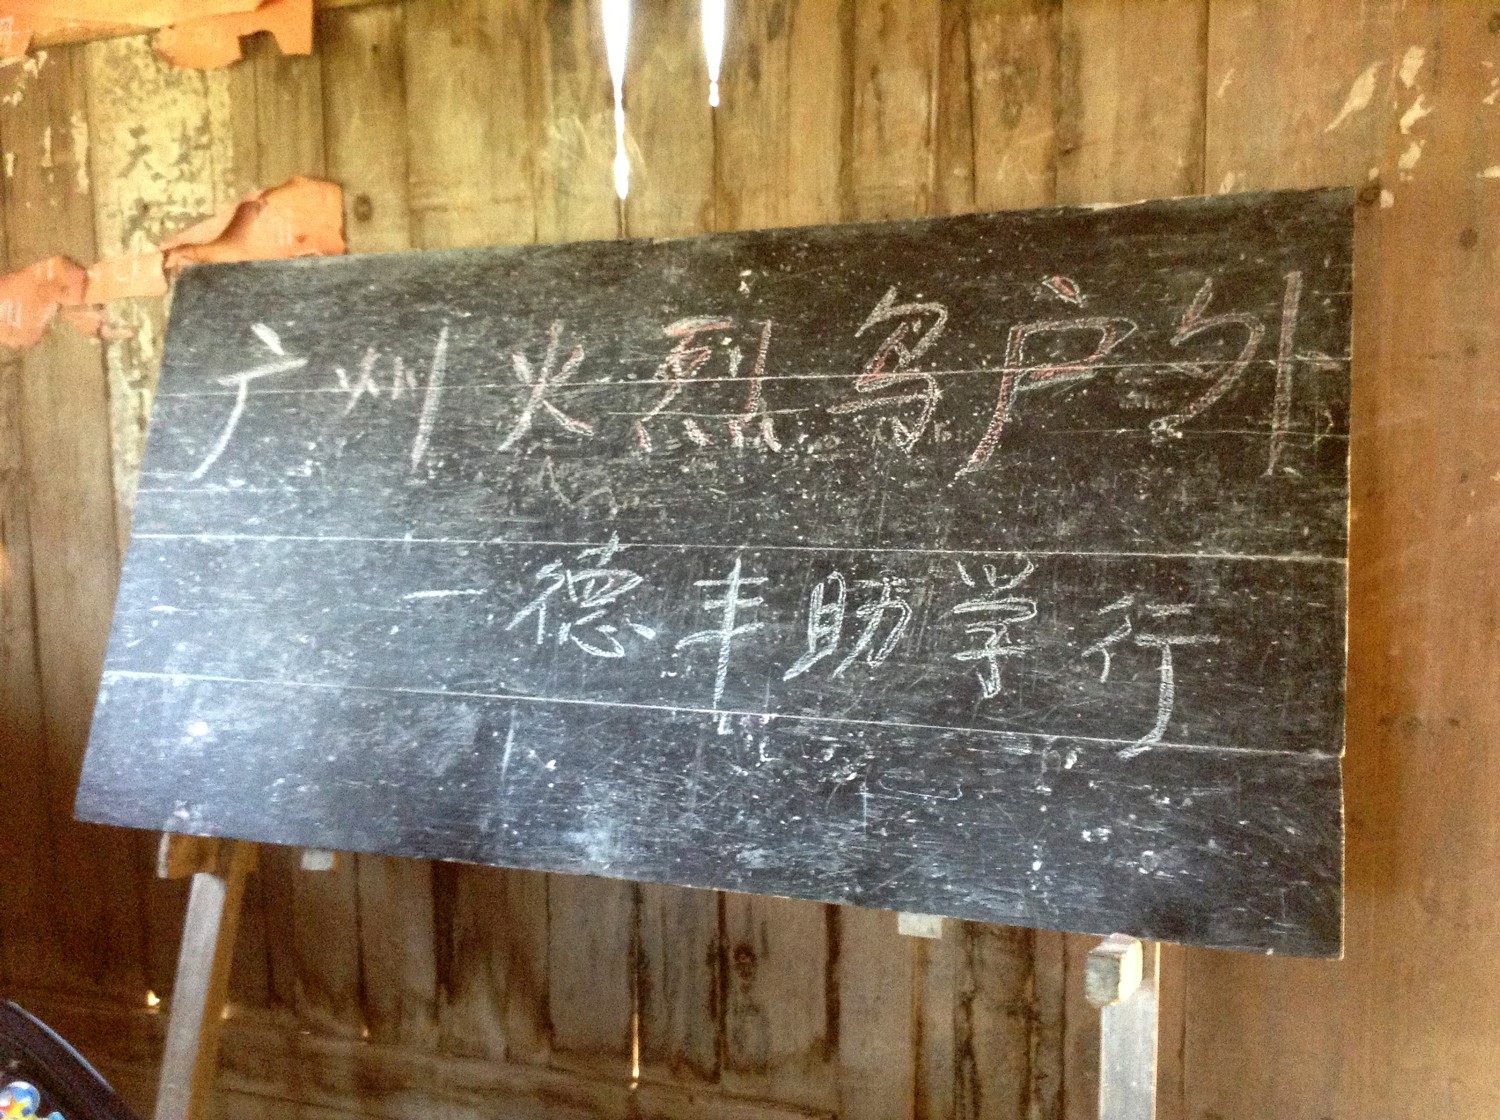 广州火烈鸟户外
一德丰助学行